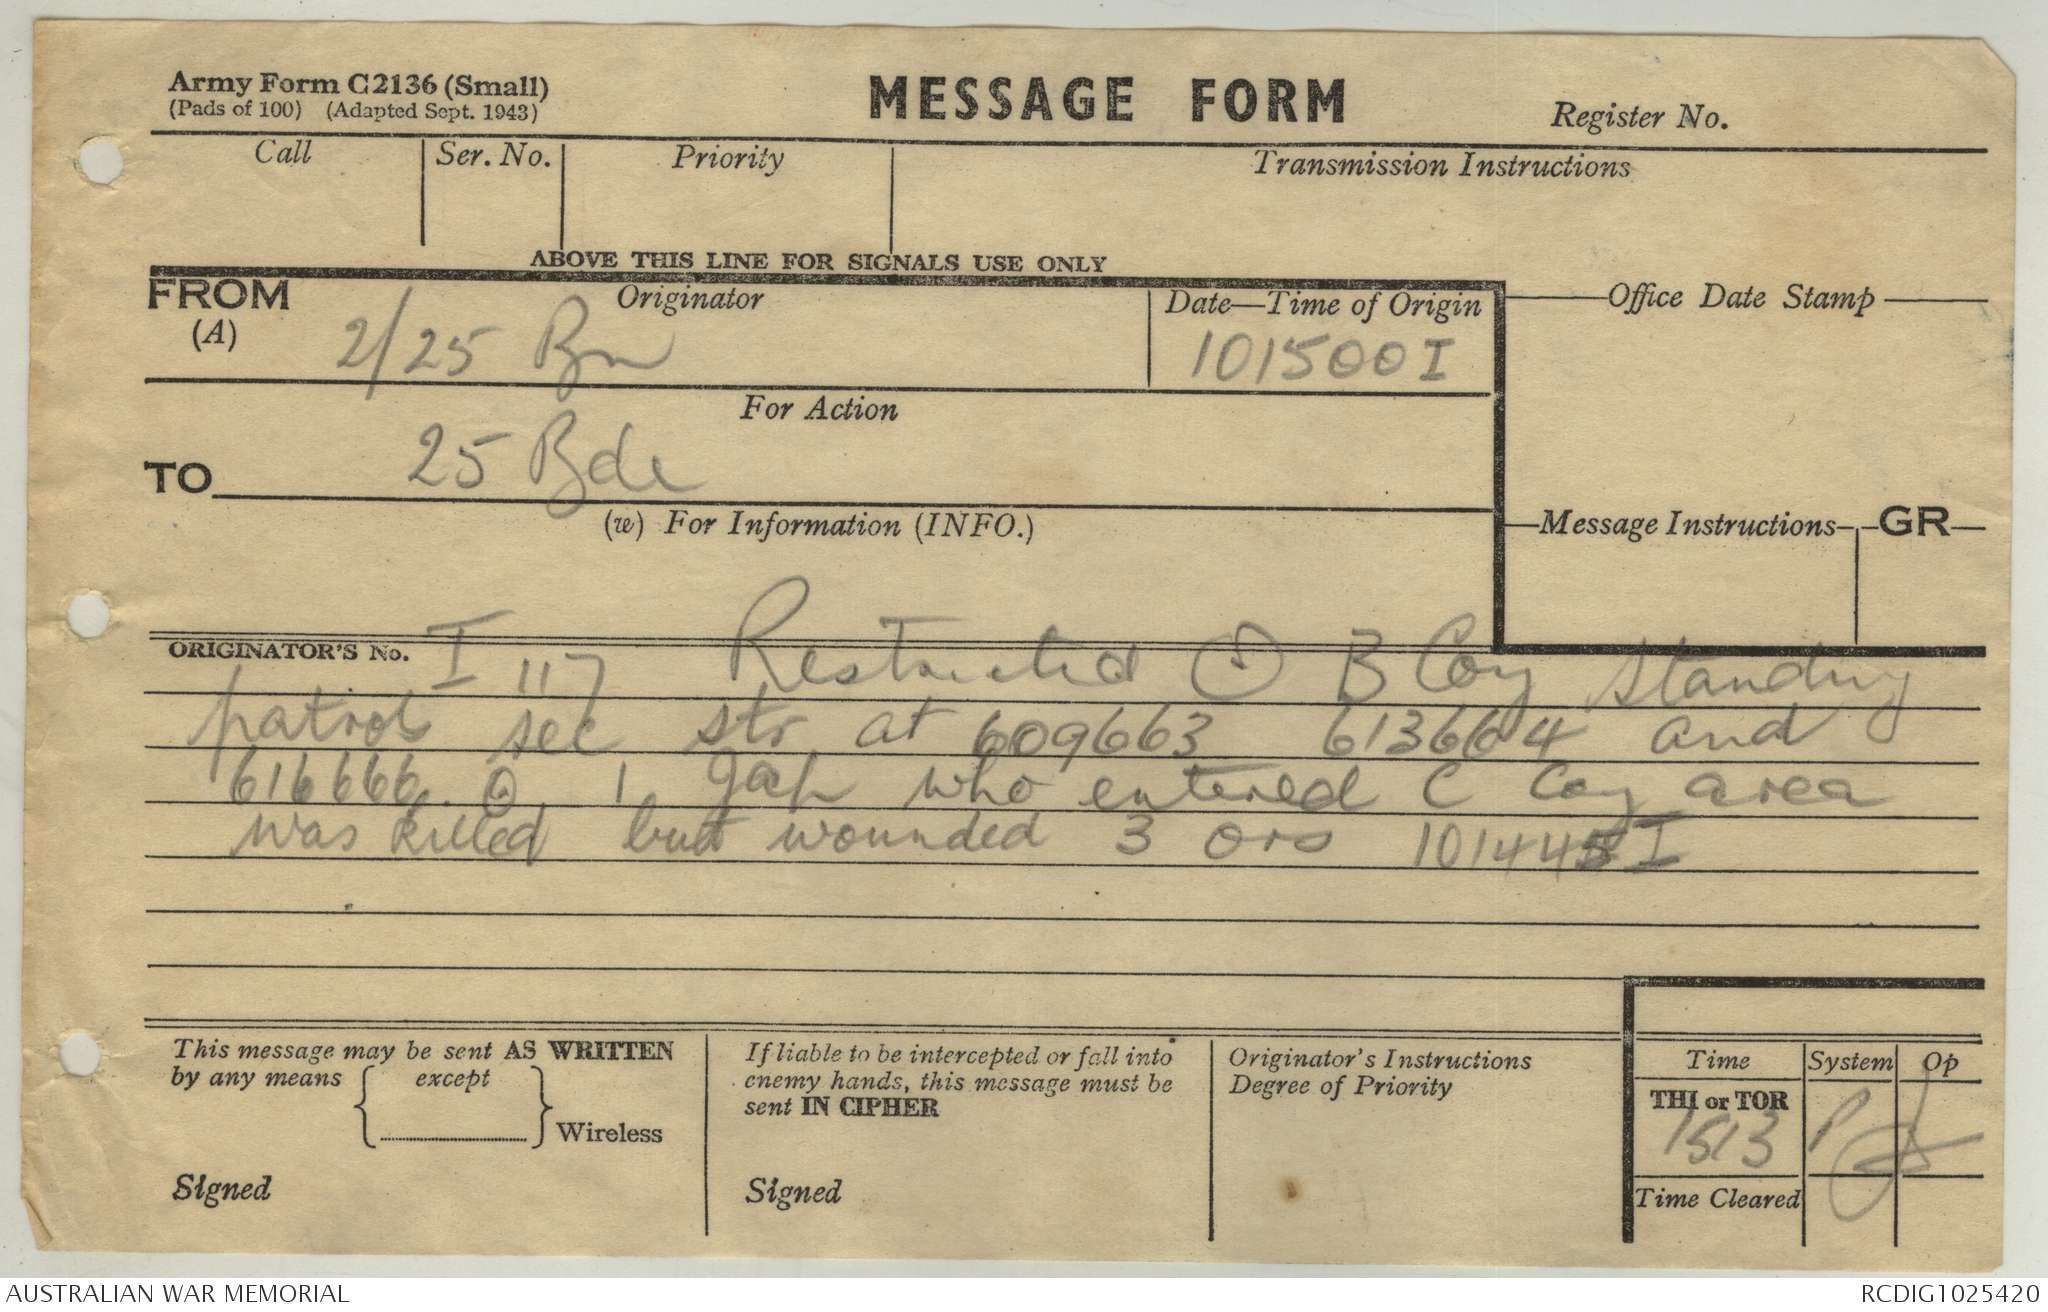 Army Form C2136 (Small)
(Pads of 100) (Adapted Sept. 1943)
MESSAGE FORM
Register No.
Call
Ser. No.
Priority
Transmission Instructions
ABOVE THIS LINE FOR SIGNALS USE ONLY
FROM
(A)
Originator
2/25 Bn
Date—Time of Origin
101500 I
Office Date Stamp
For Action
TO
25 Bde
(w) For Information (INFO.)
Message Instructions
GR
ORIGINATOR'S No. I 117 Restricted ⊙ B Coy standing
patrols sec str at 609663 613664 and
616666 ⊙ 1 Jap who entered C Coy area
was killed but wounded 3 ors 101445 I
This message may be sent AS WRITTEN
by any means except
Wireless
Signed
If liable to be intercepted or fall into
enemy hands, this message must be
sent IN CIPHER
Signed
Originator's Instructions
Degree of Priority
Time
System
Op
THI or TOR
1513
P
Time Cleared
AUSTRALIAN WAR MEMORIAL
RCDIG1025420